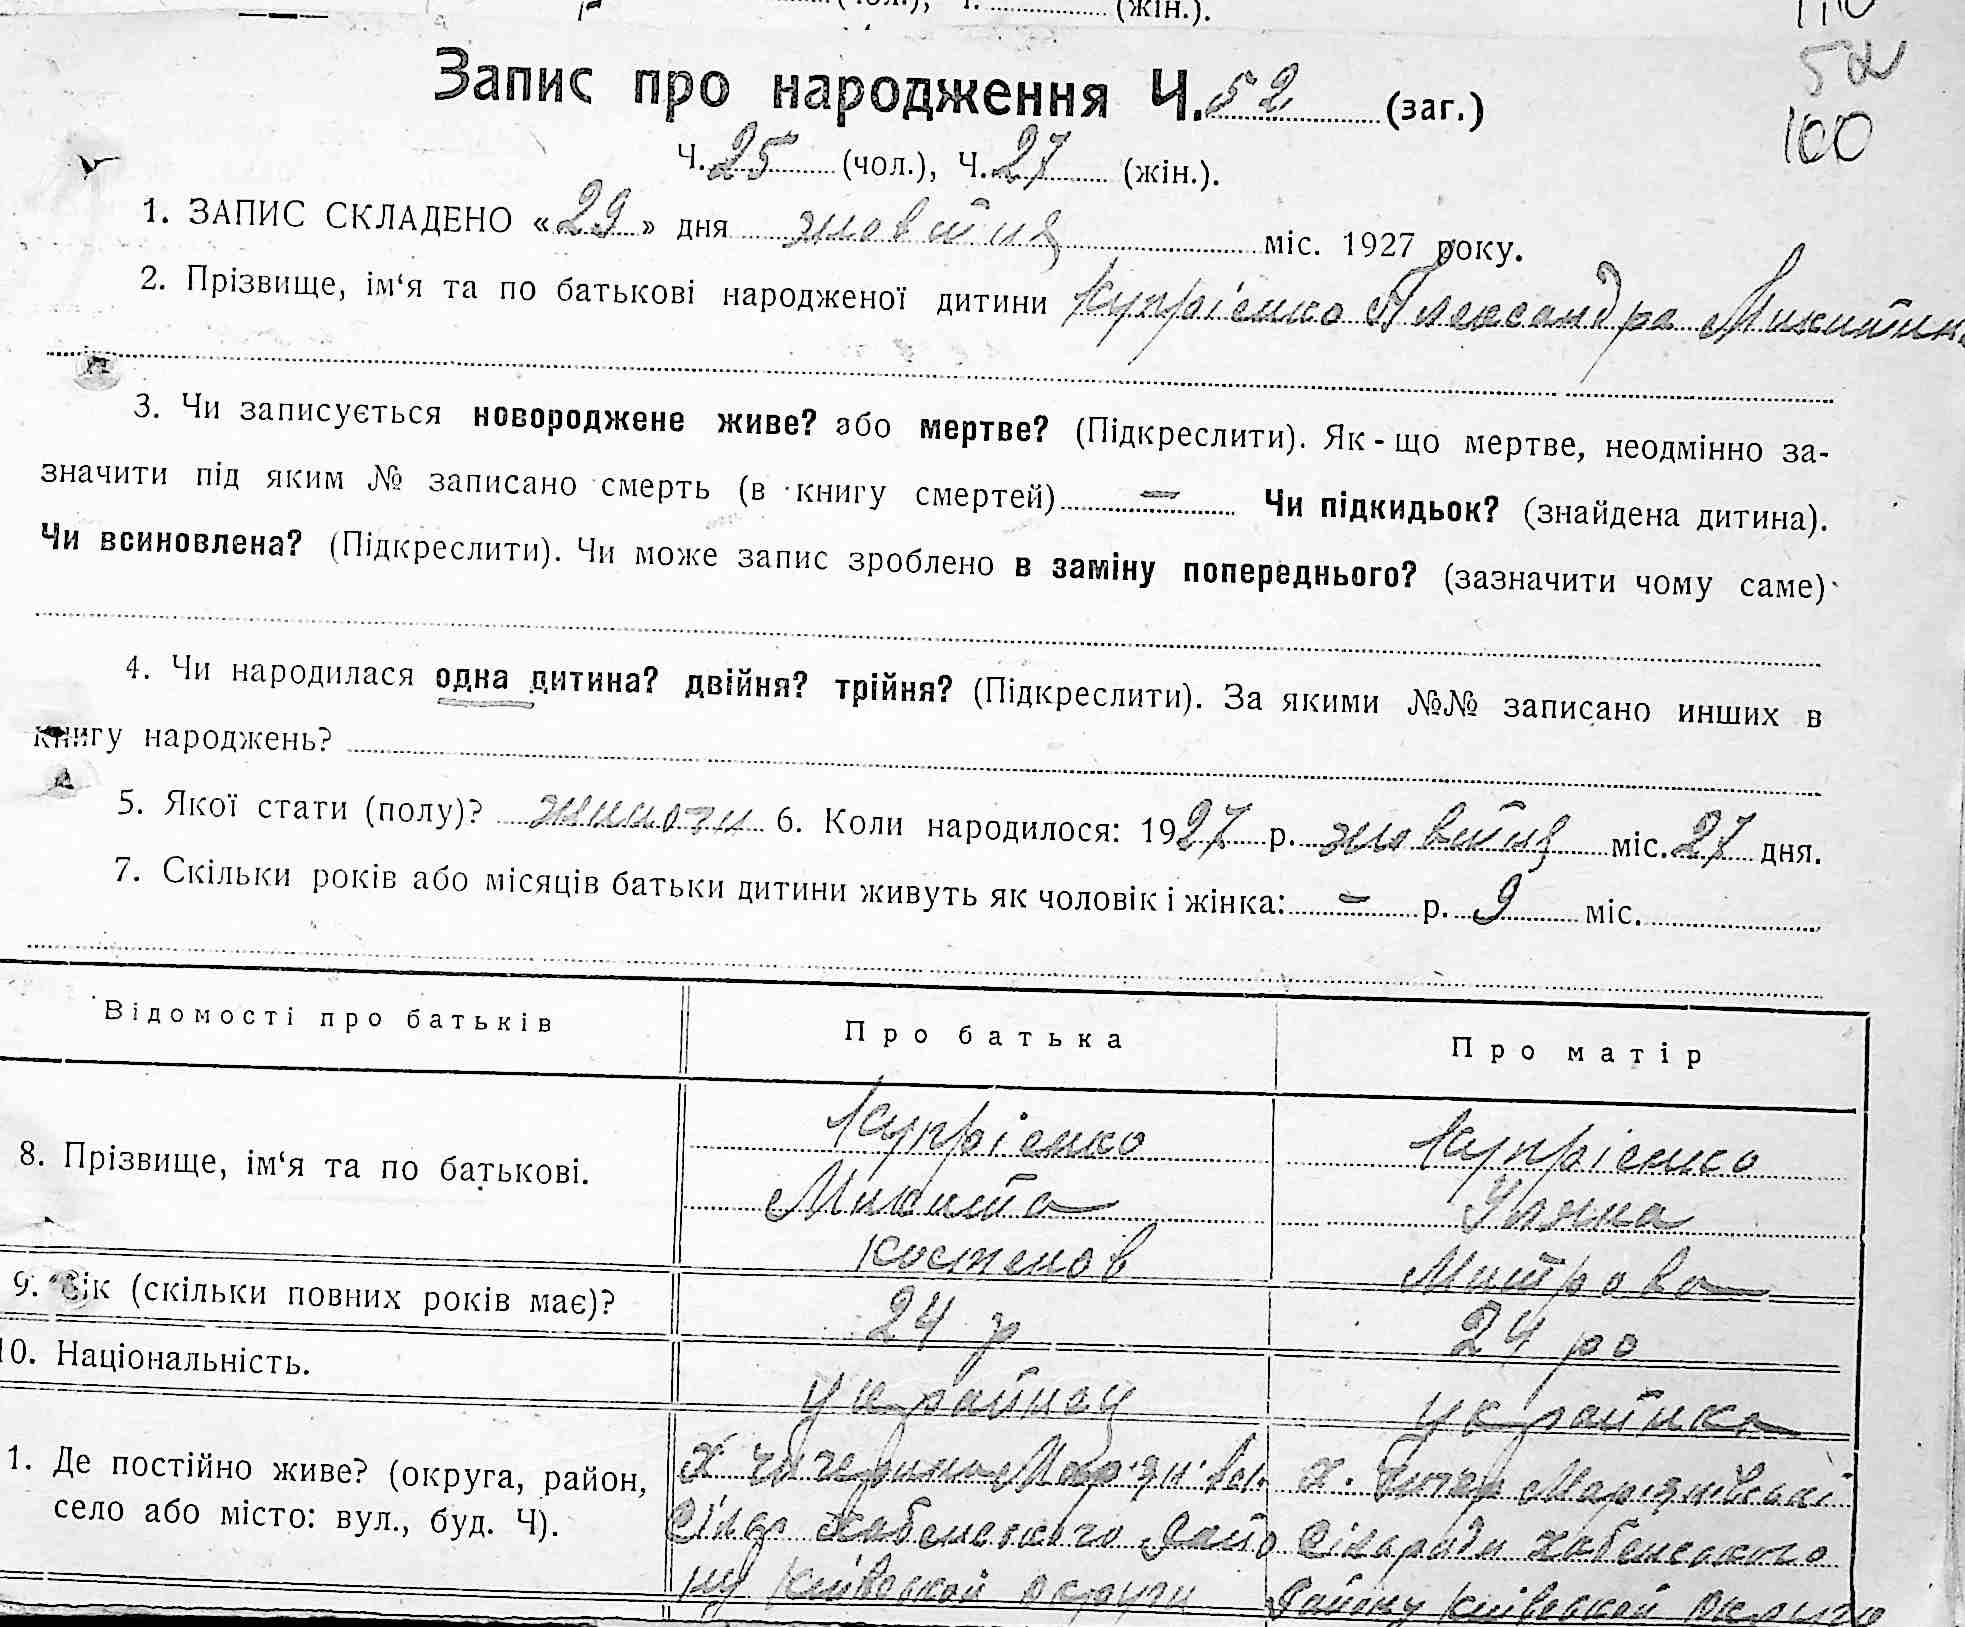 (чол.), Ч. (жін.).
Запис про народження Ч. 52 (заг.)
52
100
Ч. 25 (чол.), Ч. 27 (жін.).
1. ЗАПИС СКЛАДЕНО «29» дня жовтня міс. 1927 року.
2. Прізвище, ім‘я та по батькові народженої дитини Купрієнко Александра Микитин
3. Чи записується новороджене живе? або мертве? (Підкреслити). Як-що мертве, неодмінно за-
значити під яким № записано смерть (в книгу смертей) = Чи підкидьок? (знайдена дитина).
Чи всиновлена? (Підкреслити). Чи може запис зроблено в заміну попереднього? (зазначити чому саме)
4. Чи народилася одна дитина? двійня? трійня? (Підкреслити). За якими №№ записано инших в
книгу народжень?
5. Якої стати (полу)? жиноти 6. Коли народилося: 1927 р. жовтня міс. 27 дня.
7. Скільки років або місяців батьки дитини живуть як чоловік і жінка: – р. 9 міс.
Відомості про батьків Про батька Про матір
8. Прізвище, ім‘я та по батькові.
Купрієнко Купрієнко
Микита Уляна
Костенов Митрова
9. Вік (скільки повних років має)? 24 р 24 ро
10. Національність. украйнец украйнка
1. Де постійно живе? (округа, район,
село або місто: вул., буд. Ч).
Х. Чичерина Х. Маріянівські
Хабенського Райо Сільради Хабенського
ну Київской округи Району Київской Округи